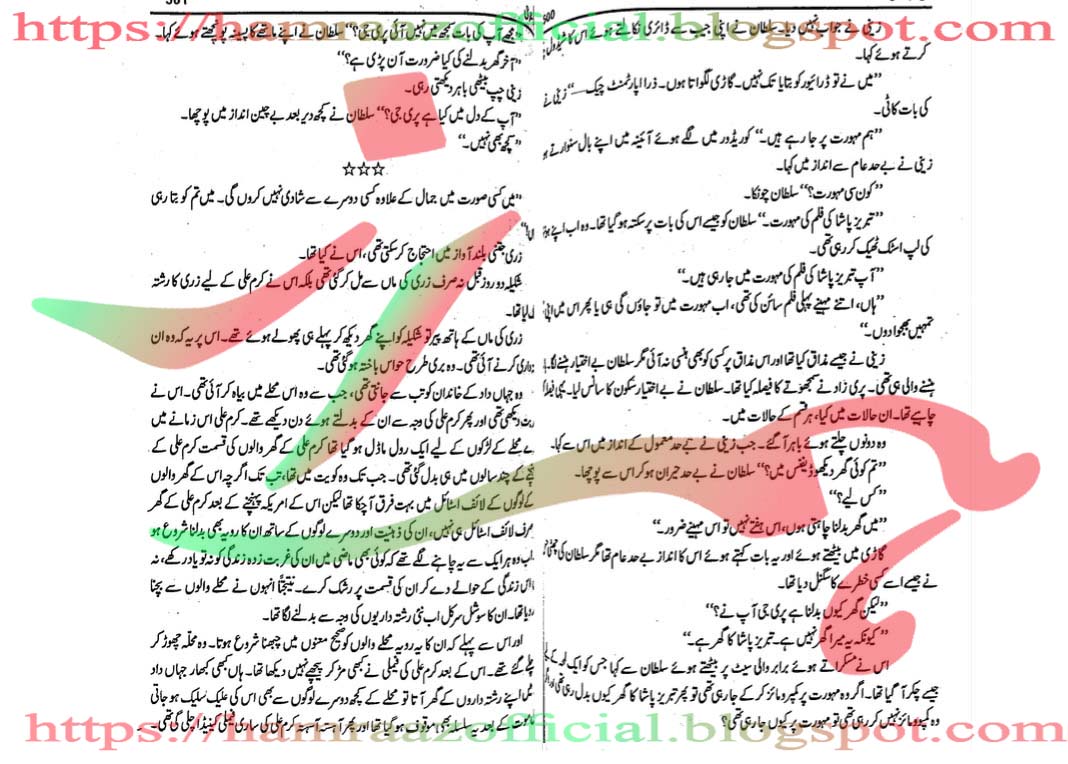 https://hamraazofficial.blogspot.com
600
زینی نے جواب نہیں دیا۔ سلطان نے اپنی جیب سے ڈائری نکالتے ہوئے اس کا شیڈول
کرتے ہوئے کہا۔
”میں نے تو ڈرائیور کو بتایا تک نہیں۔ گاڑی لگواتا ہوں۔ ذرا اپارٹمنٹ چیک“ زینی نے
کی بات کاٹی۔
”ہم مہورت پر جا رہے ہیں۔“ کوریڈور میں لگے ہوئے آئینہ میں اپنے بال سنوارتے ہو
زینی نے بے حد عام سے انداز میں کہا۔
”کون سی مہورت؟“ سلطان چونکا۔
”تبریز پاشا کی فلم کی مہورت۔“ سلطان کو جیسے اس کی بات پر سکتہ ہو گیا تھا۔ وہ اب اپنے ہو
کی لپ اسٹک ٹھیک کر رہی تھی۔
”آپ تبریز پاشا کی فلم کی مہورت میں جا رہی ہیں۔“
”ہاں، اتنے مہینے پہلی فلم سائن کی تھی، اب مہورت میں تو جاؤں گی ہی یا پھر اس میں اپنی
تمہیں بھجوا دوں۔“
زینی نے جیسے مذاق کیا تھا اور اس مذاق پر کسی کو بھی ہنسی نہ آئی مگر سلطان بے اختیار ہنسنے لگا۔
ہنسنے والی ہی تھی۔ پری زاد نے سمجھوتے کا فیصلہ کیا تھا۔ سلطان نے بے اختیار سکون کا سانس لیا۔ یہی فیصلہ
چاہیے تھا۔ ان حالات میں کیا، ہر قسم کے حالات میں۔
وہ دونوں چلتے ہوئے باہر آ گئے۔ جب زینی نے بے حد معمول کے انداز میں اس سے کہا۔
”تم کوئی گھر دیکھو ڈیفنس میں؟“ سلطان نے بے حد حیران ہو کر اس سے پوچھا۔
”کس لیے؟“
”میں گھر بدلنا چاہتی ہوں، اس ہفتے نہیں تو اس مہینے ضرور۔“
گاڑی میں بیٹھتے ہوئے اور یہ بات کہتے ہوئے اس کا انداز بے حد عام تھا مگر سلطان کی چھٹی
نے جیسے اسے کسی خطرے کا سگنل دیا تھا۔
”لیکن گھر کیوں بدلنا ہے پری جی آپ نے؟“
”کیونکہ یہ میرا گھر نہیں ہے۔ تبریز پاشا کا گھر ہے۔“
اس نے مسکراتے ہوئے برابر والی سیٹ پر بیٹھتے ہوئے سلطان سے کہا جس کو ایک لمحہ کے
جیسے چکر آ گیا تھا۔ اگر وہ مہورت پر کمپرومائز کر کے جا رہی تھی تو پھر تبریز پاشا کا گھر کیوں بدل رہی تھی اور اگر
وہ کمپرومائز نہیں کر رہی تھی تو مہورت پر کیوں جا رہی تھی؟
آپ کی بات سمجھ میں نہیں آئی پری جی؟“ سلطان نے اپنے ماتھے کا پسینہ پونچھتے ہوئے کہا۔
”آخر گھر بدلنے کی کیا ضرورت آن پڑی ہے؟“
زینی چپ بیٹھی باہر دیکھتی رہی۔
”آپ کے دل میں کیا ہے پری جی؟“ سلطان نے کچھ دیر بعد بے چین انداز میں پوچھا۔
”کچھ بھی نہیں۔“
☆☆☆
”میں کسی صورت میں جمال کے علاوہ کسی دوسرے سے شادی نہیں کروں گی۔ میں تم کو بتا رہی
زری جتنی بلند آواز میں احتجاج کر سکتی تھی، اس نے کیا تھا۔
شکیلہ دو روز قبل نہ صرف زری کی ماں سے مل کر گئی تھی بلکہ اس نے کرم علی کے لیے زری کا رشتہ
زری کی ماں کے ہاتھ پیر تو شکیلہ کو اپنے گھر دیکھ کر پہلے ہی پھولے ہوئے تھے۔ اس پر یہ کہ وہ ان
کرنے آئی تھی۔ وہ بری طرح حواس باختہ ہو گئی تھی۔
وہ جہاں داد کے خاندان کو تب سے جانتی تھی، جب سے وہ اس محلے میں بیاہ کر آئی تھی۔ اس نے
دیکھی تھی اور پھر کرم علی کی وجہ سے ان کے بدلتے ہوئے دن دیکھے تھے۔ کرم علی اس زمانے میں
محلے کے لڑکوں کے لیے ایک رول ماڈل ہو گیا تھا کرم علی کے گھر والوں کی قسمت کرم علی کے
کے چند سالوں میں ہی بدل گئی تھی۔ جب تک وہ کویت میں تھا، تب تک اگرچہ اس کے گھر والوں
کے لوگوں کے لائف اسٹائل میں بہت فرق آ چکا تھا لیکن اس کے امریکہ پہنچنے کے بعد کرم علی کے گھر
صرف لائف اسٹائل ہی نہیں، ان کی ذہنیت اور دوسرے لوگوں کے ساتھ ان کا رویہ بھی بدلنا شروع ہو
اب وہ ہر ایک سے یہ چاہنے لگے تھے کہ کوئی بھی ماضی میں ان کی غربت زدہ زندگی کو نہ تو یاد رکھے، نہ
اس زندگی کے حوالے دے کر ان کی قسمت پر رشک کرے۔ نتیجتاً انہوں نے محلے والوں سے بچنا
دیا تھا۔ ان کا سوشل سرکل اب نئی رشتہ داریوں کی وجہ سے بدلنے لگا تھا۔
اور اس سے پہلے کہ ان کا یہ رویہ محلے والوں کو صحیح معنوں میں چبھنا شروع ہوتا۔ وہ محلہ چھوڑ کر
چلے گئے تھے۔ اس کے بعد کرم علی کی فیملی نے کبھی مڑ کر پیچھے نہیں دیکھا تھا۔ ہاں کبھی کبھار جہاں داد
اپنے رشتہ داروں کے گھر آتا تو محلے کے کچھ دوسرے لوگوں سے بھی اس کی علیک سلیک ہو جاتی
کے بعد یہ سلسلہ بھی موقوف ہو گیا تھا اور پھر آہستہ آہستہ کرم علی کی ساری فیملی کینیڈا چلی گئی تھی۔
https://hamraazofficial.blogspot.com